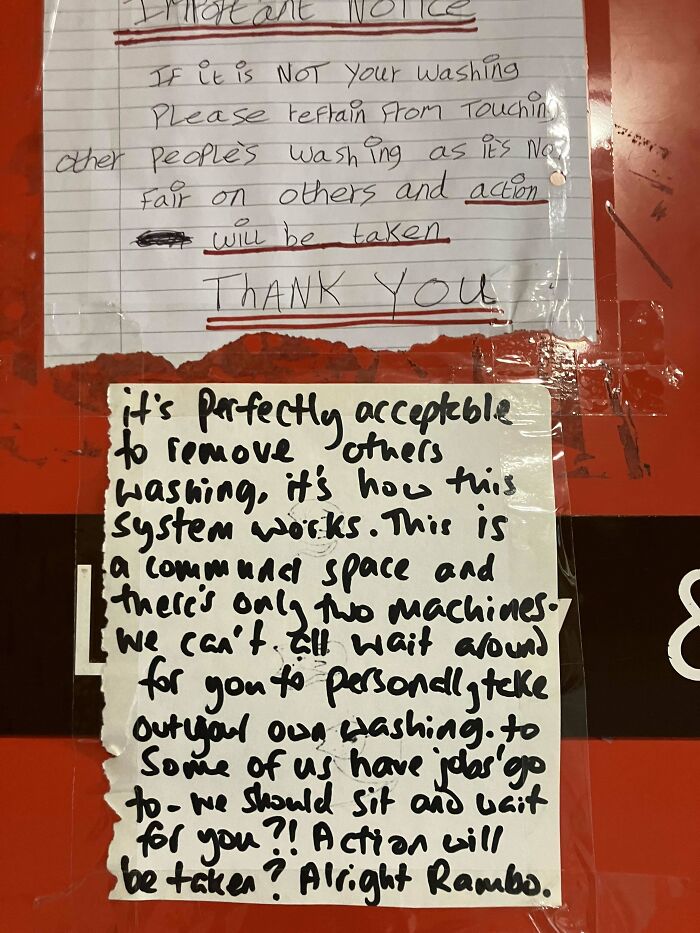 Important Notice
If it is NOT Your Washing
Please refrain from Touching
other people's washing as it's No
fair on others and action
will be taken
THANK YOU
it's perfectly acceptable
to remove others
washing, it's how this
system works. This is
a communal space and
there's only two machines.
We can't all wait around
for you to personally take
out your own washing. to
Some of us have jobs go
to - we should sit and wait
for you?! Action will
be taken? Alright Rambo.
L
y
&